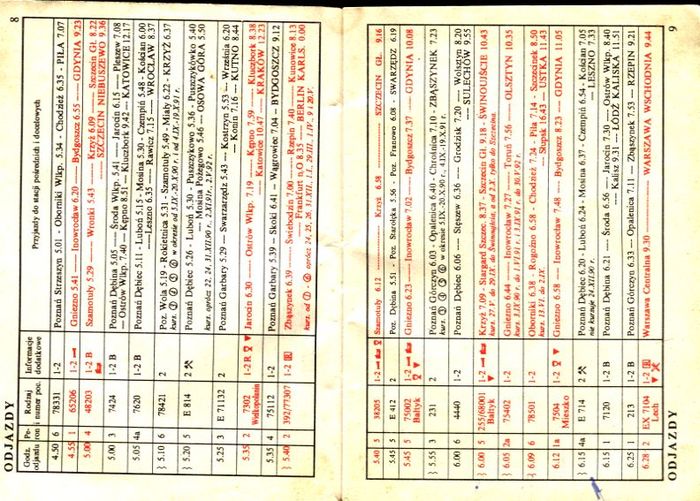 8
ODJAZDY
Godz. odjazdu
Pe-ron
Rodzaj i numer poc.
Informacje dodatkowe
Przyjazdy do stacji pośrednich i docelowych
4.50 6 78331 1-2 Poznań Strzeszyn 5.01 - Oborniki Wlkp. 5.34 - Chodzież 6.35 - PIŁA 7.07
4.55 1 65206 1-2 Gniezno 5.41 — Inowrocław 6.20 — Bydgoszcz 6.55 — GDYNIA 9.23
5.00 4 48203 1-2 B Szamotuły 5.29 — Wronki 5.43 Krzyż 6.09 — Szczecin Gł. 8.22
— SZCZECIN NIEBUSZEWO 9.36
5.00 3 7424 1-2 Poznań Dębina 5.05 — Środa Wlkp. 5.41 — Jarocin 6.15 — Pleszew 7.08
— Ostrów Wlkp. 7.40 — Kępno 8.51 — Kluczbork 9.42 — KATOWICE 12.17
5.05 4a 7620 1-2 B Poznań Dębiec 5.11 - Luboń 5.15 - Mosina 5.30 — Czempiń 5.48 - Kościan 6.00
— Leszno 6.35 — Rawicz 7.15 — WROCŁAW 8.37
5.10 6 78421 2 Poz. Wola 5.19 - Rokietnica 5.31 - Szamotuły 5.49 - Miały 6.22 - KRZYŻ 6.37
5.20 5 E 814 2 Poznań Dębiec 5.26 - Luboń 5.30 - Puszczykowo 5.36 - Puszczykówko 5.40
— Mosina Pożegowo 5.46 — OSOWA GÓRA 5.50
5.25 3 E 71132 2 Poznań Garbary 5.29 — Swarzędz 5.43 — Kostrzyn 5.53 — Września 6.20
— Konin 7.16 — KUTNO 8.44
5.35 2 7302 Wielkopolanin 1-2 R Jarocin 6.30 — Ostrów Wlkp. 7.19 — Kępno 7.59 — Kluczbork 8.38
— Katowice 10.47 — KRAKÓW 12.23
5.35 4 75112 1-2 Poznań Garbary 5.39 — Skoki 6.41 — Wągrowiec 7.04 — BYDGOSZCZ 9.12
5.40 2 392/77307 1-2 Zbąszynek 6.39 — Świebodzin 7.00 — Rzepin 7.40 — Kunowice 8.13
— Frankfurt n.O 8.35 — BERLIN KARLS.
5.40 5 38205 1-2 Szamotuły 6.12 — Krzyż 6.58 — SZCZECIN GŁ. 9.16
5.40 5 E 412 2 Poz. Dębina 5.51 - Poz. Starołęka 5.56 - Poz. Franowo 6.08 - SWARZĘDZ 6.19
5.45 5 75002 Bałtyk 1-2 Gniezno 6.23 — Inowrocław 7.02 — Bydgoszcz 7.37 — GDYNIA 10.08
5.55 3 231 2 Poznań Górczyn 6.03 - Opalenica 6.40 - Chrośnica 7.10 - ZBĄSZYNEK 7.23
6.00 6 4440 1-2 Stęszew 6.36 — Grodzisk 7.20 — Wolsztyn 8.20
— SULECHÓW 9.55
6.00 5 255/68001 Bałtyk 1-2 Krzyż 7.09 - Stargard Szczec. 8.37 - Szczecin Gł. 9.18 - ŚWINOUJŚCIE 10.43
6.05 2a 75402 1-2 Gniezno 6.44 — Inowrocław 7.27 — Toruń 7.56 — OLSZTYN 10.35
6.09 6 78501 1-2 Oborniki 6.38 - Rogoźno 6.58 - Chodzież 7.24 - Piła 7.14 - Szczecinek 8.50
— Słupsk 16.43 — USTKA 11.43
6.12 1a 7504 Mieszko 1-2 Gniezno 6.58 — Inowrocław 7.48 — Bydgoszcz 8.23 — GDYNIA 11.05
6.15 4a E 714 2 Poznań Dębiec 6.20 - Luboń 6.24 - Mosina 6.37 - Czempiń 6.54 - Kościan 7.05
nie kursuje 24.XII.90 r. — LESZNO 7.33
6.15 1 7120 1-2 B Poznań Dębina 6.21 — Środa 6.56 — Jarocin 7.30 — Ostrów Wlkp. 8.40
— Kalisz 9.31 — ŁÓDŹ KALISKA 11.51
6.25 1 213 1-2 B Poznań Górczyn 6.33 — Opalenica 7.11 — Zbąszynek 7.53 — RZEPIN 9.21
6.28 2 EX 7104 Lech 1-2 Warszawa Centralna 9.30 — WARSZAWA WSCHODNIA 9.44
ODJAZDY
9